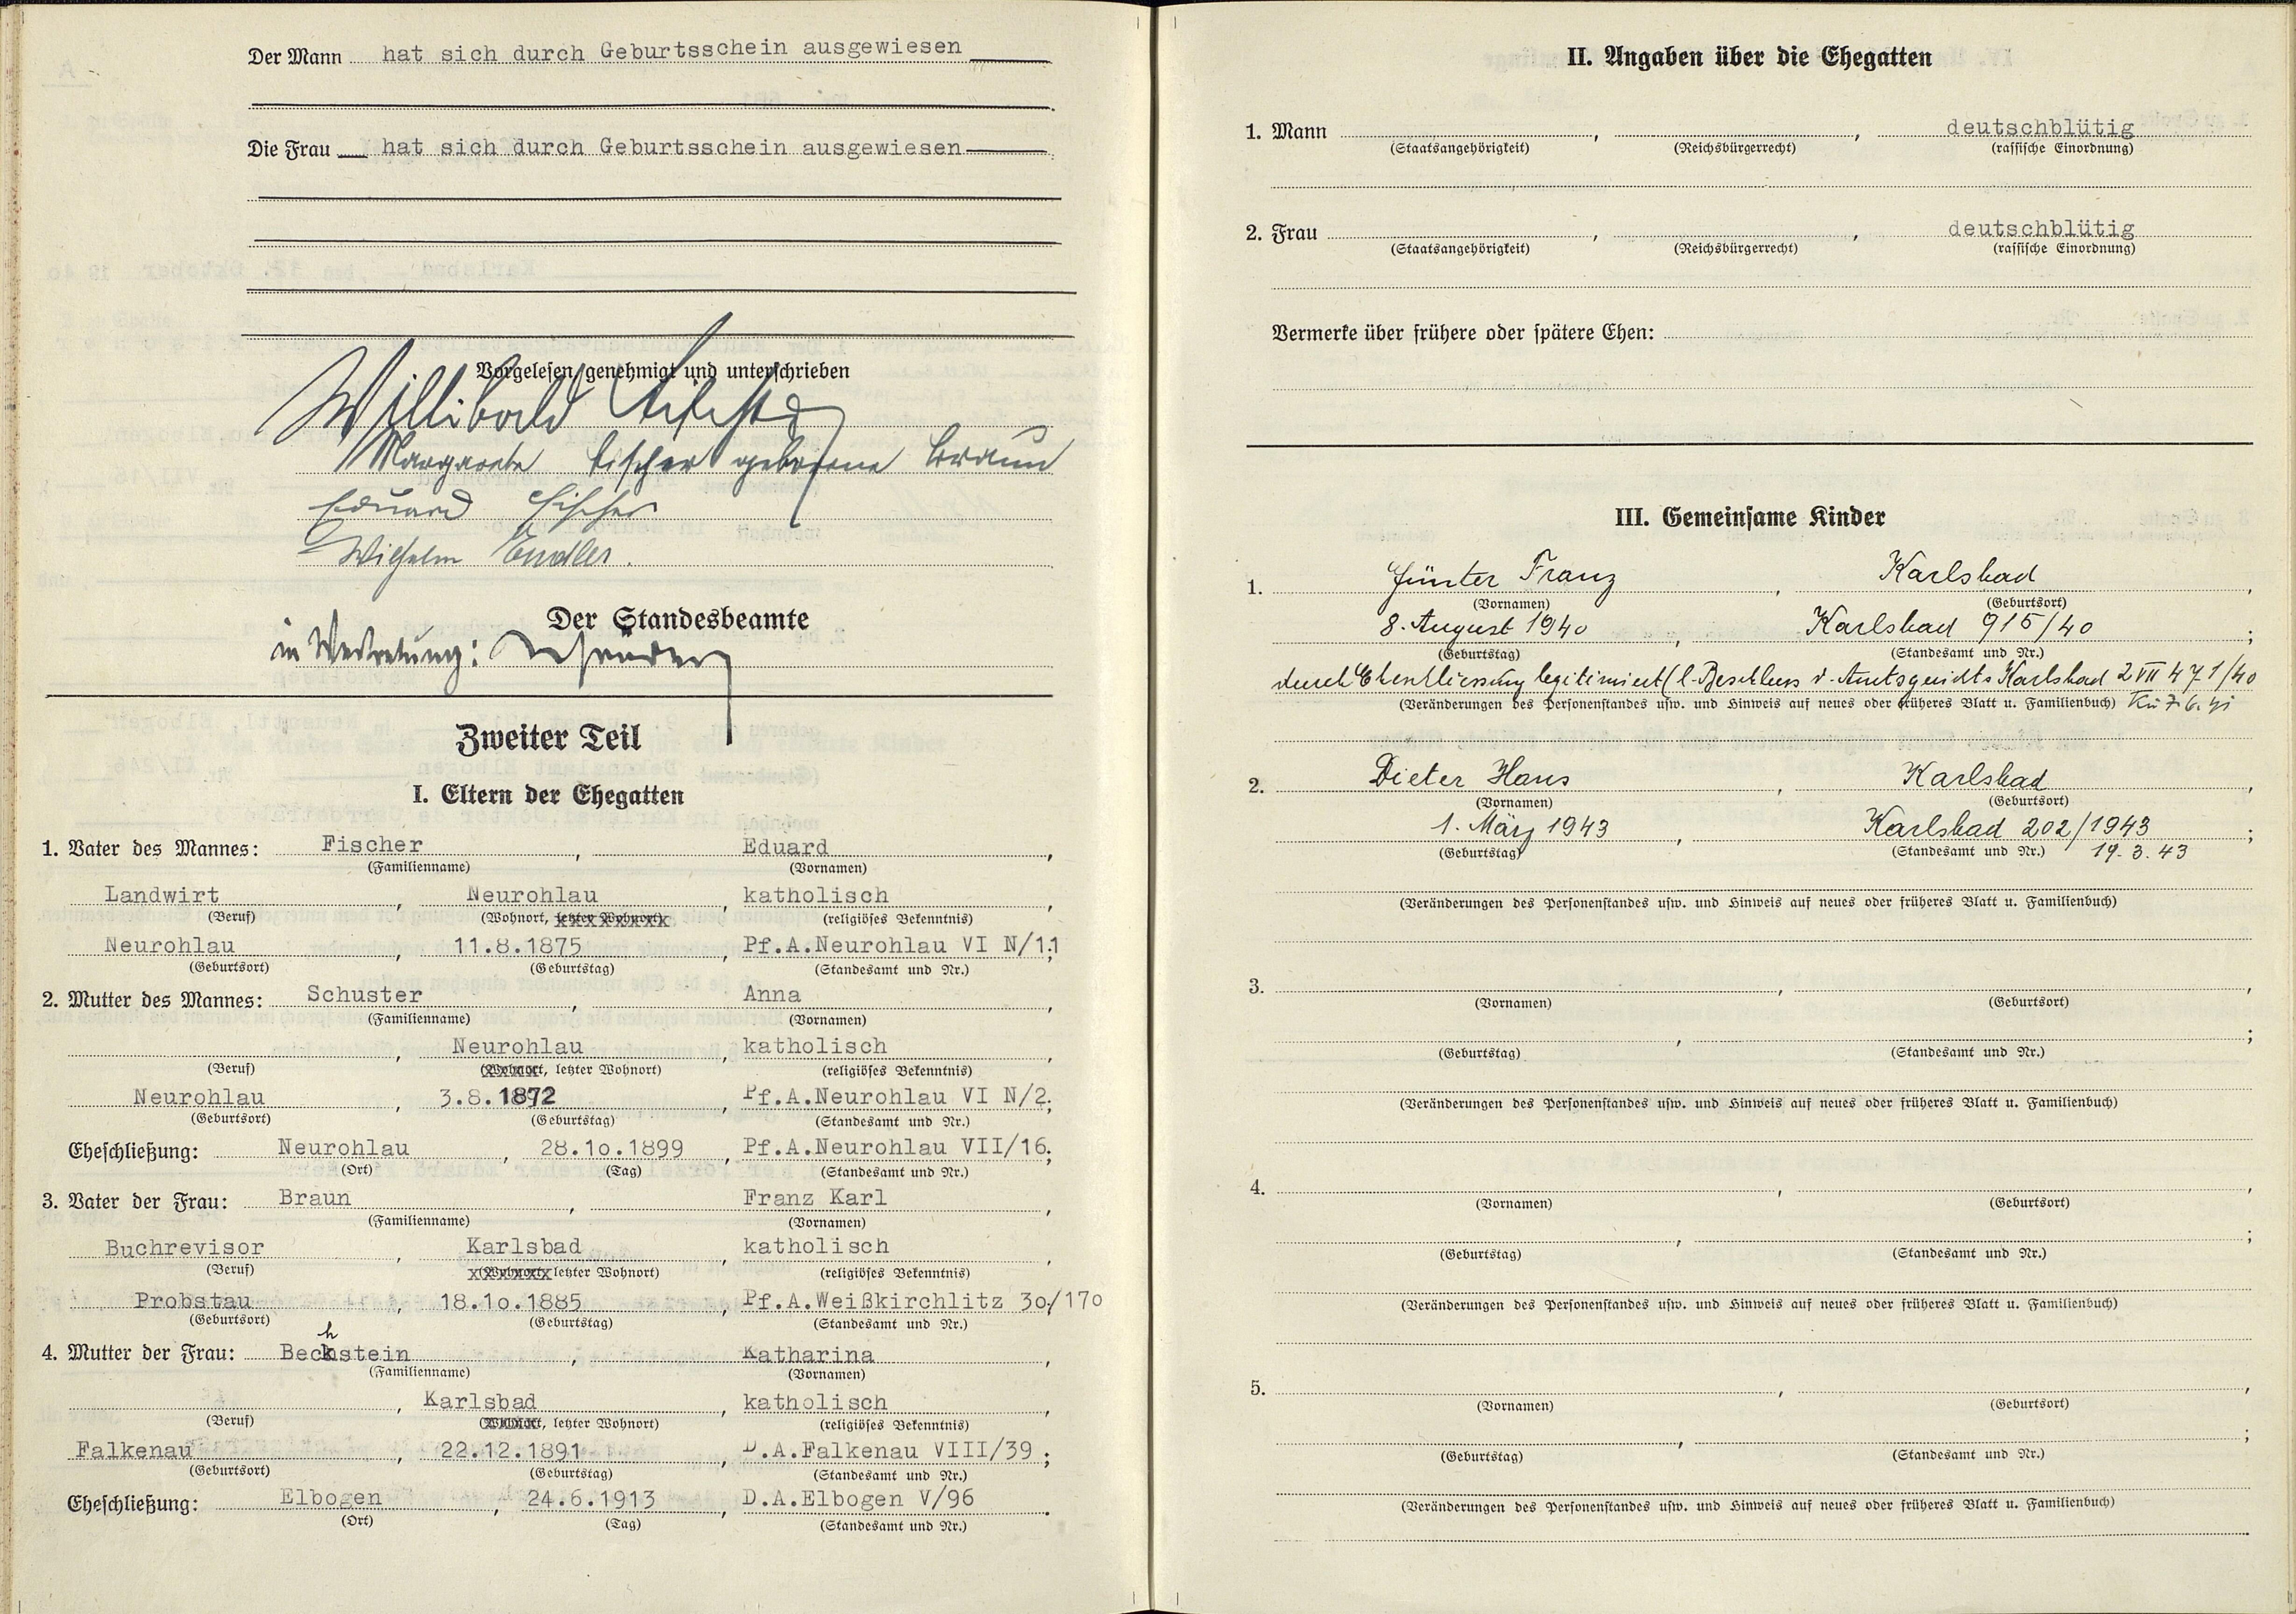 Der Mann hat sich durch Geburtsschein ausgewiesen
Die Frau hat sich durch Geburtsschein ausgewiesen
Vorgelesen, genehmigt und unterschrieben
Willibald Fischer
Margarete Fischer geborene Braun
Eduard Fischer
Wilhelm Endler.
Der Standesbeamte
in Vertretung:
Zweiter Teil
I. Eltern der Ehegatten
1. Vater des Mannes: Fischer, Eduard,
(Familienname) (Vornamen)
Landwirt, Neurohlau, katholisch,
(Beruf) (Wohnort, letzter Wohnort) (religiöses Bekenntnis)
Neurohlau, 11.8.1875, Pf.A.Neurohlau VI N/11;
(Geburtsort) (Geburtstag) (Standesamt und Nr.)
2. Mutter des Mannes: Schuster, Anna,
(Familienname) (Vornamen)
, Neurohlau, katholisch,
(Beruf) (Wohnort, letzter Wohnort) (religiöses Bekenntnis)
Neurohlau, 3.8.1872, Pf.A.Neurohlau VI N/2;
(Geburtsort) (Geburtstag) (Standesamt und Nr.)
Eheschließung: Neurohlau, 28.1o.1899, Pf.A.Neurohlau VII/16;
(Ort) (Tag) (Standesamt und Nr.)
3. Vater der Frau: Braun, Franz Karl,
(Familienname) (Vornamen)
Buchrevisor, Karlsbad, katholisch,
(Beruf) (Wohnort, letzter Wohnort) (religiöses Bekenntnis)
Probstau, 18.1o.1885, Pf.A.Weißkirchlitz 3o/17o
(Geburtsort) (Geburtstag) (Standesamt und Nr.)
h
4. Mutter der Frau: Bechstein, Katharina,
(Familienname) (Vornamen)
, Karlsbad, katholisch,
(Beruf) (Wohnort, letzter Wohnort) (religiöses Bekenntnis)
Falkenau, 22.12.1891, D.A.Falkenau VIII/39;
(Geburtsort) (Geburtstag) (Standesamt und Nr.)
Eheschließung: Elbogen, 24.6.1913, D.A.Elbogen V/96.
(Ort) (Tag) (Standesamt und Nr.)
II. Angaben über die Ehegatten
1. Mann , , deutschblütig
(Staatsangehörigkeit) (Reichsbürgerrecht) (rassische Einordnung)
2. Frau , , deutschblütig
(Staatsangehörigkeit) (Reichsbürgerrecht) (rassische Einordnung)
Vermerke über frühere oder spätere Ehen:
III. Gemeinsame Kinder
1. Günter Franz, Karlsbad,
(Vornamen) (Geburtsort)
8. August 1940, Karlsbad 915/40;
(Geburtstag) (Standesamt und Nr.)
durch Eheschliessung legitimiert (l. Beschluss d. Amtsgerichts Karlsbad 2 VII 471/40
(Veränderungen des Personenstandes usw. und Hinweis auf neues oder früheres Blatt u. Familienbuch) 7.6.41
2. Dieter Hans, Karlsbad,
(Vornamen) (Geburtsort)
1. März 1943, Karlsbad 202/1943;
(Geburtstag) (Standesamt und Nr.) 19.3.43
(Veränderungen des Personenstandes usw. und Hinweis auf neues oder früheres Blatt u. Familienbuch)
3. , ,
(Vornamen) (Geburtsort)
, ;
(Geburtstag) (Standesamt und Nr.)
(Veränderungen des Personenstandes usw. und Hinweis auf neues oder früheres Blatt u. Familienbuch)
4. , ,
(Vornamen) (Geburtsort)
, ;
(Geburtstag) (Standesamt und Nr.)
(Veränderungen des Personenstandes usw. und Hinweis auf neues oder früheres Blatt u. Familienbuch)
5. , ,
(Vornamen) (Geburtsort)
, ;
(Geburtstag) (Standesamt und Nr.)
(Veränderungen des Personenstandes usw. und Hinweis auf neues oder früheres Blatt u. Familienbuch)